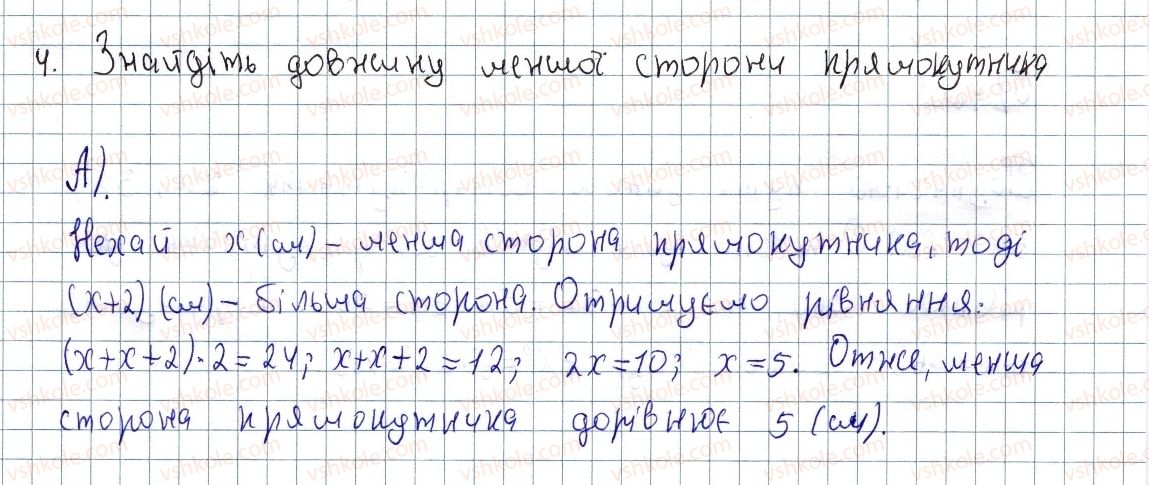 4. Знайдіть довжину меншої сторони прямокутника
А).
Нехай x (см) - менша сторона прямокутника, тоді
(x+2) (см) - більша сторона. Отримуємо рівняння:
(x+x+2)·2=24; x+x+2=12; 2x=10; x=5. Отже, менша
сторона прямокутника дорівнює 5 (см).